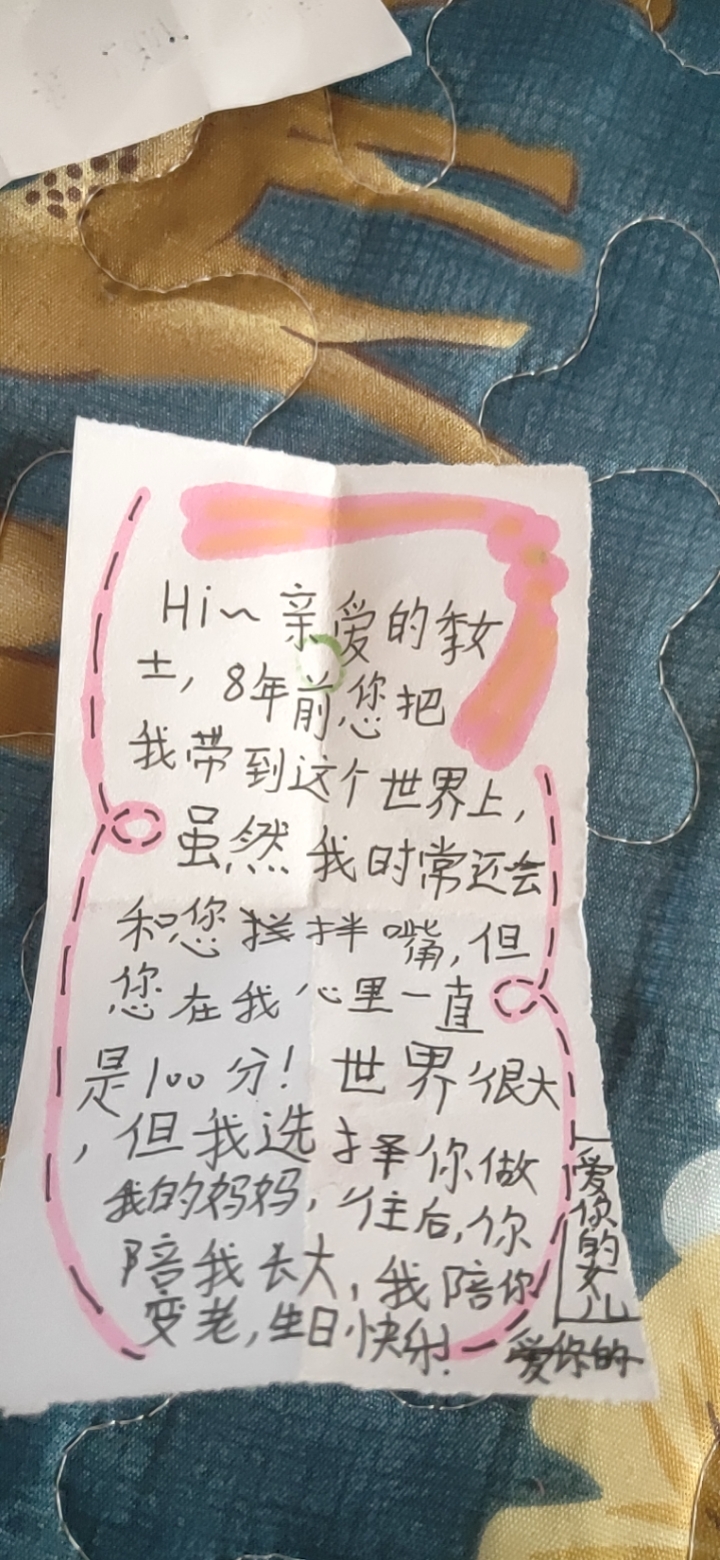 Hi~亲爱的李女
士,8年前您把
我带到这个世界上,
虽然我时常还会
和您拌嘴,但
您在我心里一直
是100分!世界很大
,但我选择你做
我的妈妈,往后,你
陪我长大,我陪你
变老,生日快乐!
爱你的女儿
爱你的